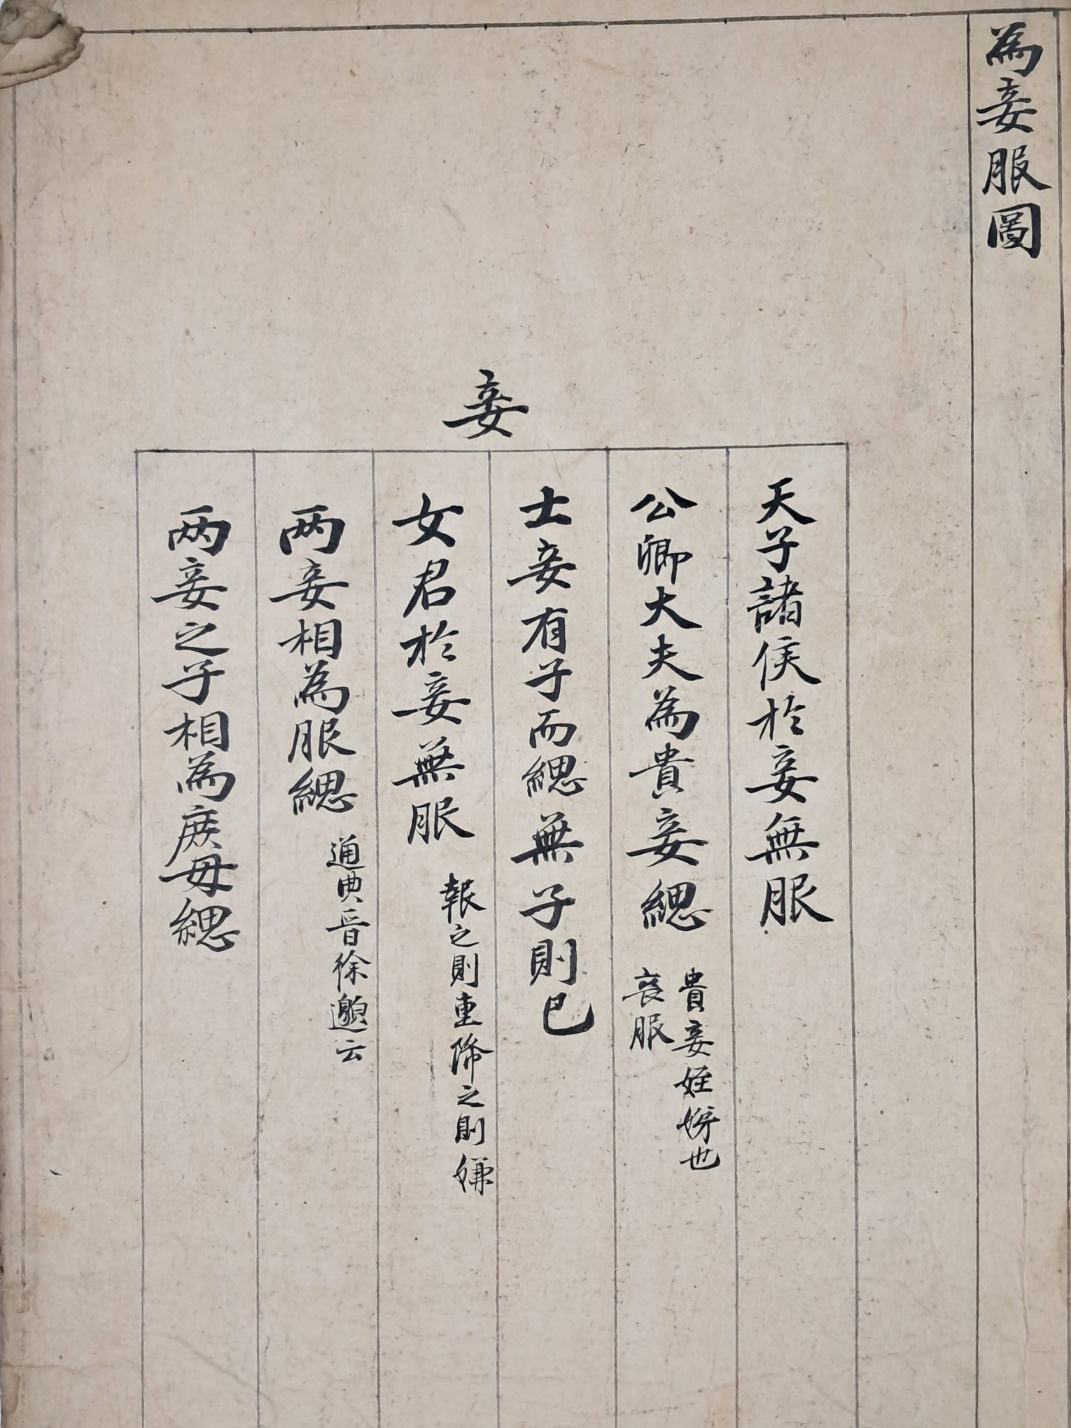 為妾服圖
妾
天子諸侯於妾無服
公卿大夫為貴妾緦
貴妾姪娣也
喪服
士妾有子而緦無子則已
女君於妾無服
報之則重降之則嫌
两妾相為服緦
通典晉徐邈云
两妾之子相為庻母緦